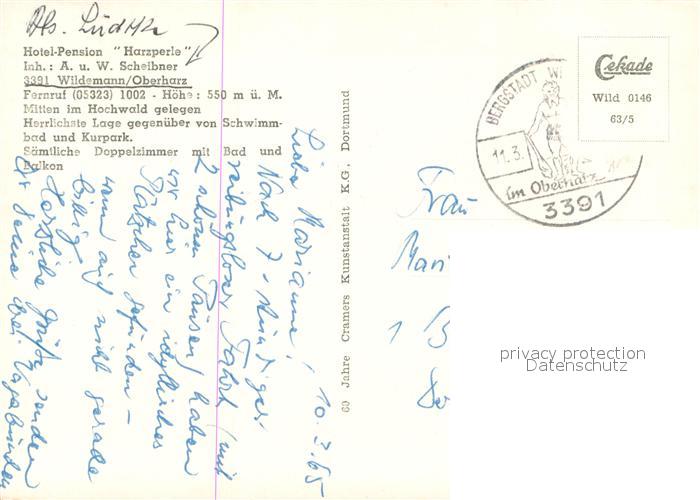 Abs. Lüdtke
Hotel-Pension "Harzperle"
Inh.: A. u. W. Scheibner
3391 Wildemann/Oberharz
Fernruf (05323) 1002 - Höhe: 550 m ü. M.
Mitten im Hochwald gelegen
Herrlichste Lage gegenüber von Schwimm-
bad und Kurpark.
Sämtliche Doppelzimmer mit Bad und
Balkon
10.3.65
Liebe Marianne!
Nach 7-stündiger
reibungsloser Fahrt (mit
2 schönen Pausen) haben
wir hier ein idyllisches
Plätzchen gefunden –
wenn auch nicht gerade
billig.
Herzliche Grüße senden
Dir Deine bei Vagabunden
60 Jahre Cramers Kunstanstalt K.G., Dortmund
Cekade
Wild 0146
63/5
BERGSTADT WI
11.3.
im Oberharz
3391
Frau
Mari
1 B
privacy protection
Datenschutz